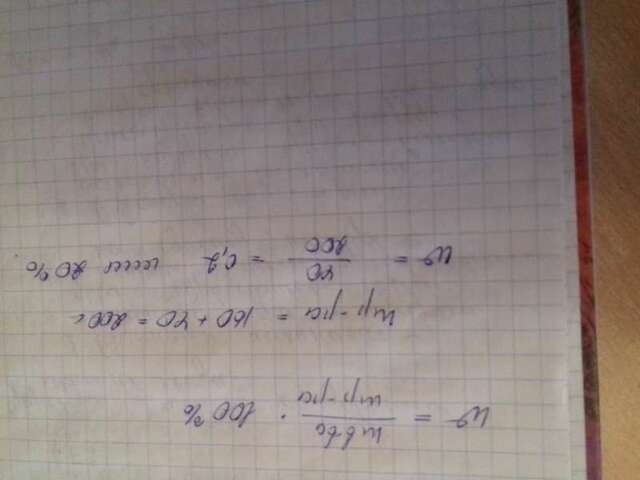 w = mв-ва / mр-ра · 100%
mр-ра = 160 + 40 = 200 г
w = 40 / 200 = 0,2 или 20%